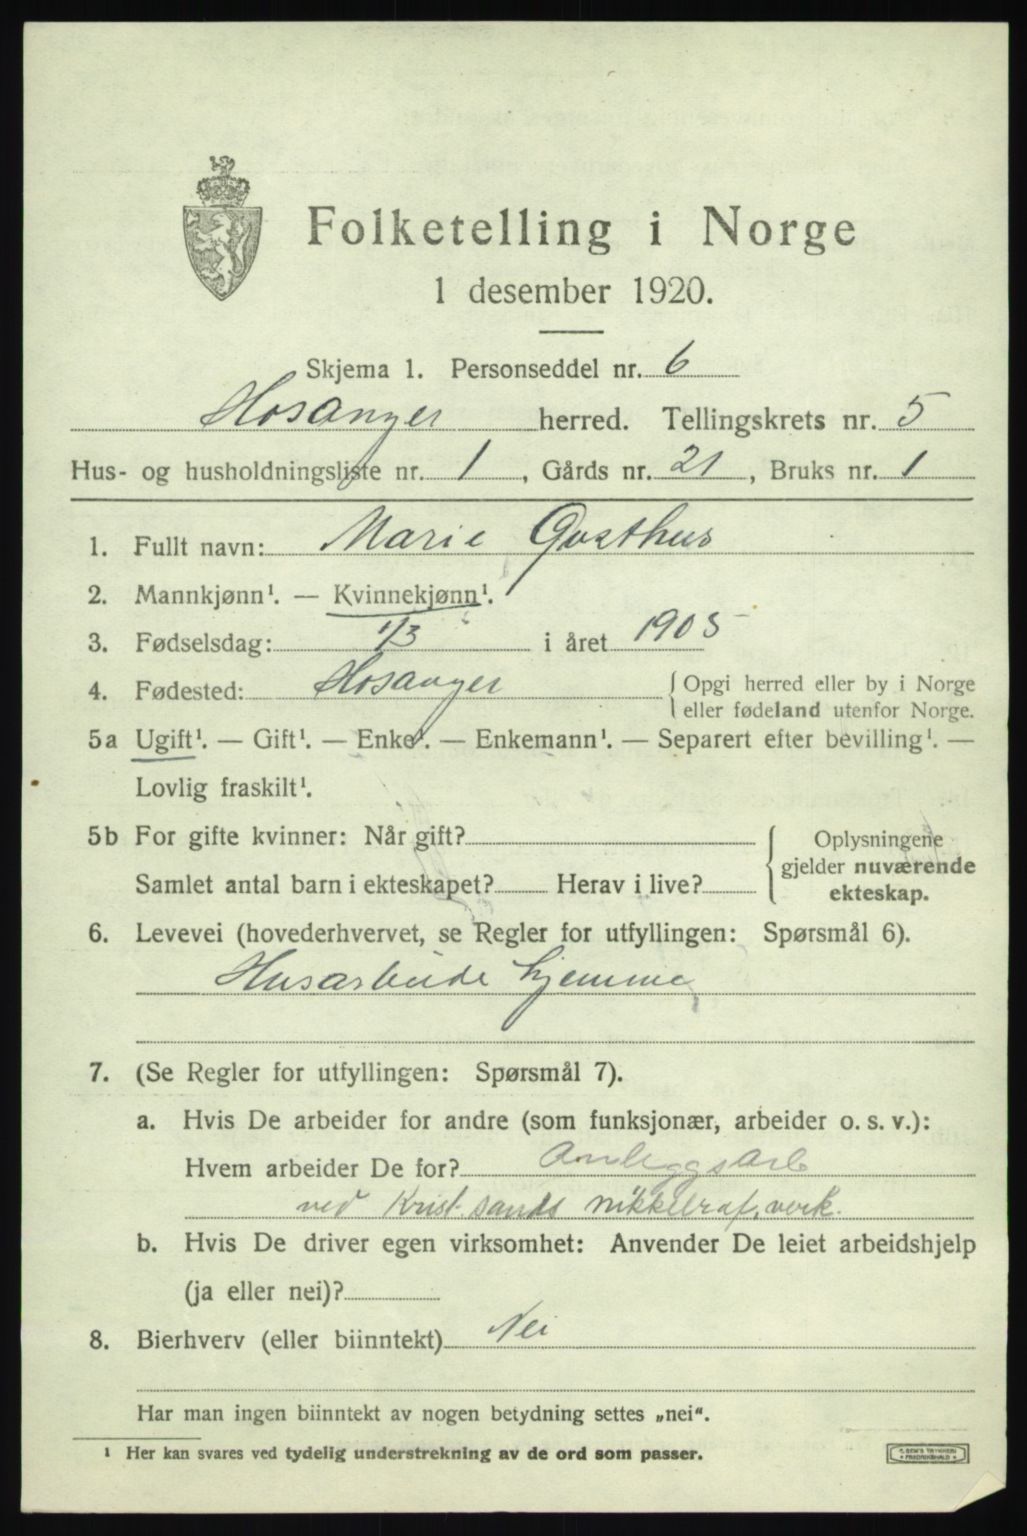 Folketelling i Norge
1 desember 1920.
Skjema 1. Personseddel nr. 6
Hosanger herred. Tellingskrets nr. 5
Hus- og husholdningsliste nr. 1, Gårds nr. 21, Bruks nr. 1
1. Fullt navn: Marie
2. Mannkjønn¹. — Kvinnekjønn¹.
3. Fødselsdag: 1/3 i året 1905
4. Fødested: Hosanger { Opgi herred eller by i Norge
eller fødeland utenfor Norge.
5a Ugift¹. — Gift¹. — Enke¹. — Enkemann¹. — Separert efter bevilling¹. —
Lovlig fraskilt¹.
5b For gifte kvinner: Når gift?
Samlet antal barn i ekteskapet? Herav i live?
{ Oplysningene
gjelder nuværende
ekteskap.
6. Levevei (hovederhvervet, se Regler for utfyllingen: Spørsmål 6).
Husarbeide hjemme
7. (Se Regler for utfyllingen: Spørsmål 7).
a. Hvis De arbeider for andre (som funksjonær, arbeider o. s. v.):
Hvem arbeider De for? Anleggsarb
ved Krist.sands nikkelraf.verk.
b. Hvis De driver egen virksomhet: Anvender De leiet arbeidshjelp
(ja eller nei)?
8. Bierhverv (eller biinntekt) Nei
Har man ingen biinntekt av nogen betydning settes „nei“.
¹ Her kan svares ved tydelig understrekning av de ord som passer.